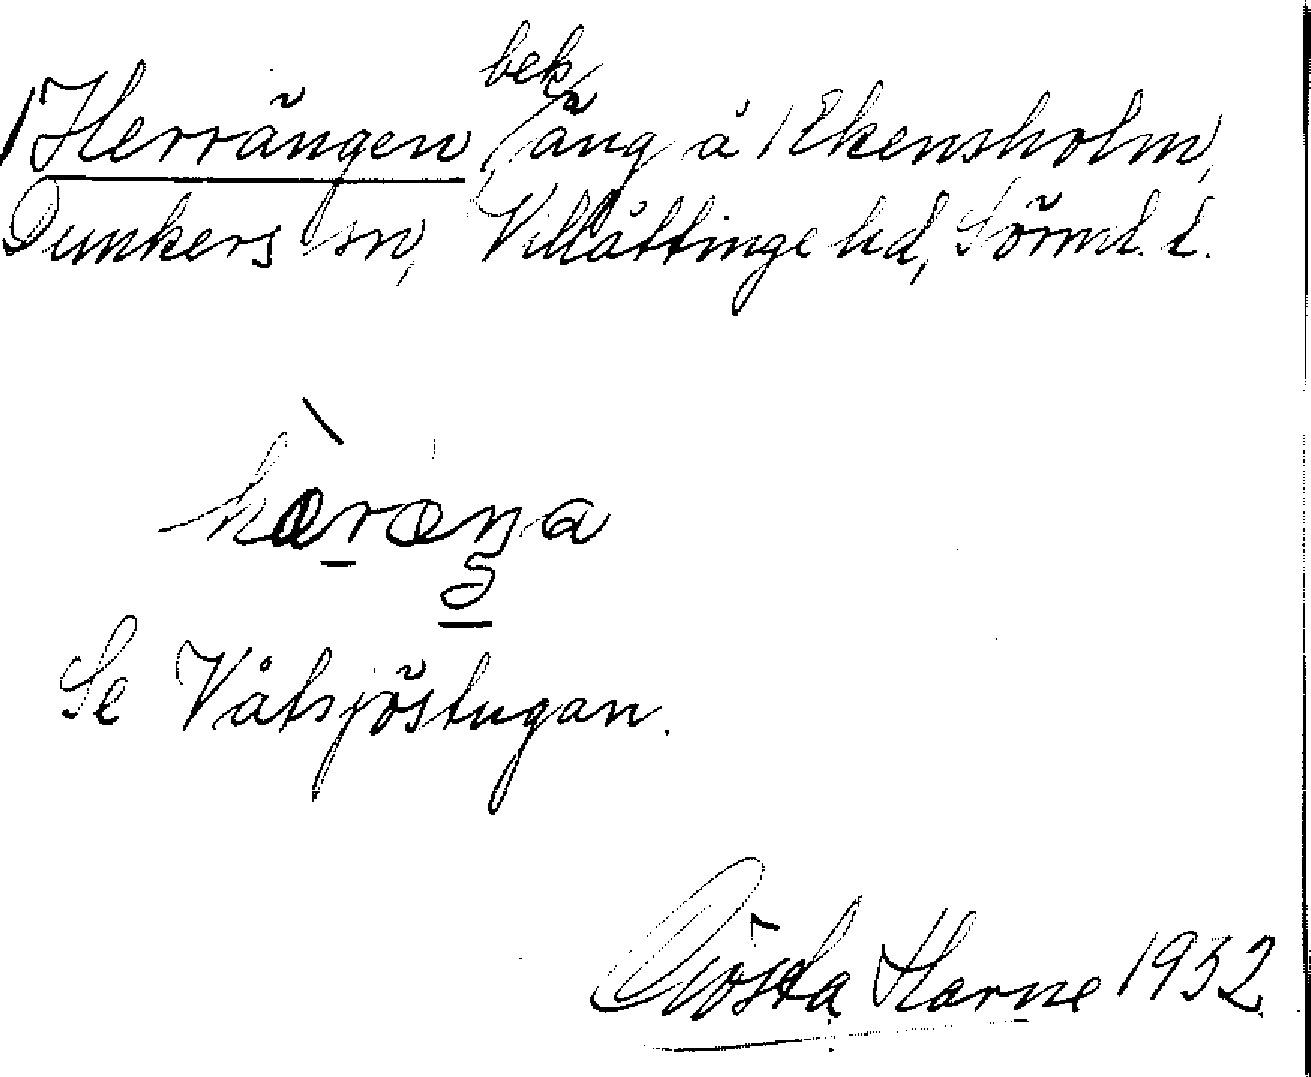 Herrängen, bek. äng å Ekensholm,
Dunkers sn, Villåttinge hd, Sörml. l.
Se Våtsjöstugan.
Gösta Harne 1932